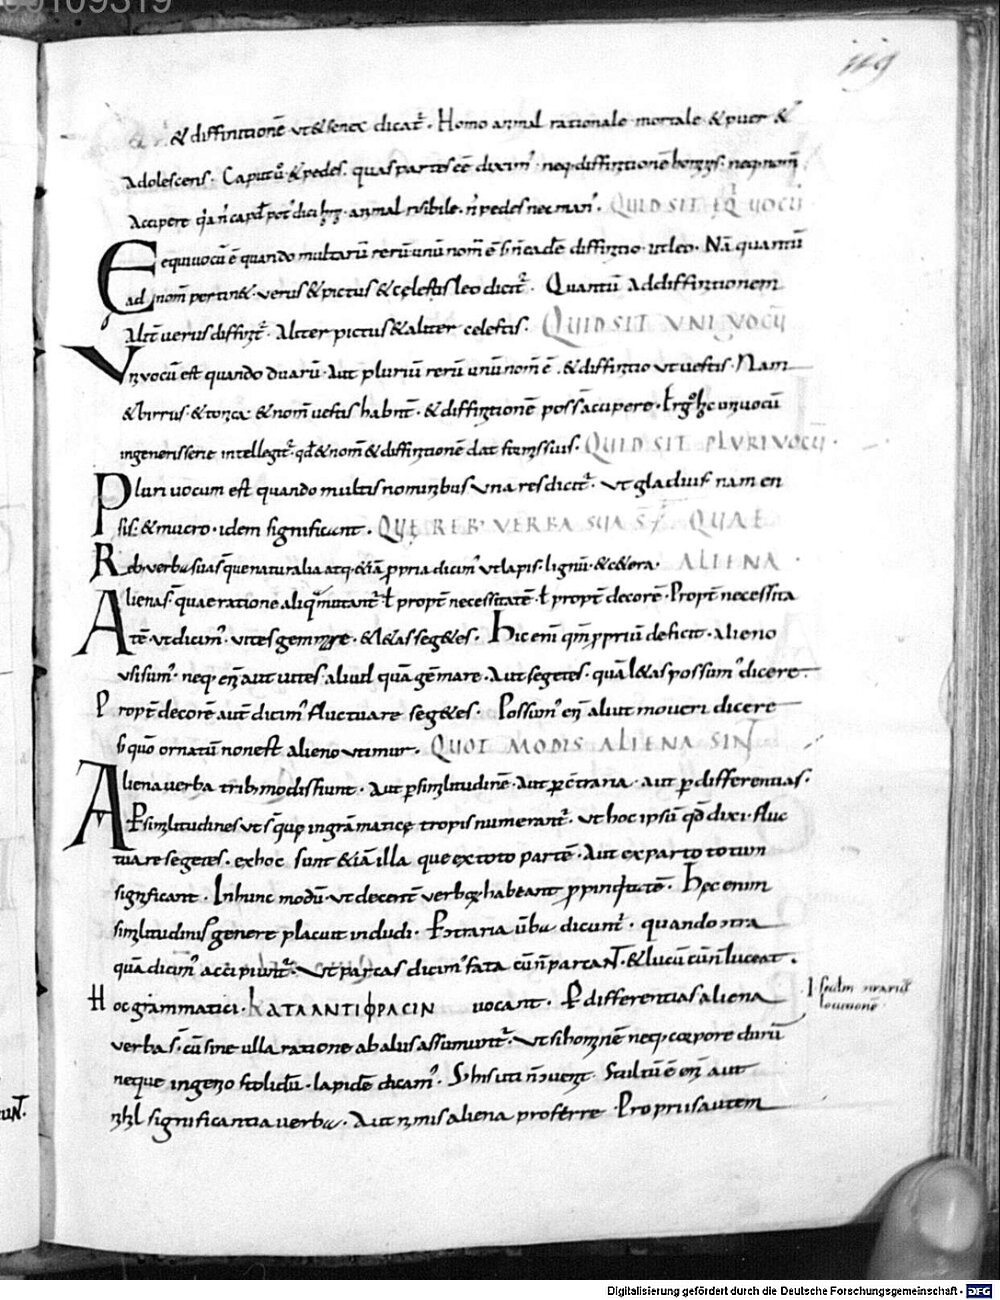 00109319
119
& diffinitionē ut & senex dicat̄ · Homo animal rationale mortale & puer &
Adolescens · Caput ū & pedes · quas partes eē diximꝰ · neq; diffinitionē neq; nom̄
Accipere animal risibile · n̄ pedes nec manꝰ · QUID SIT EQUOCŪ
Equiuocū ē quando multarū rerū unū nom̄ ē s; n̄ eadē diffinitio · ut leo · Nā quantū
ad nom̄ pertin& · uerus & pictus & cęlestis leo dicit̄ · Quantū ad diffinitionem
Alit̄ uerus diffinit̄ · Aliter pictus & aliter celestis · QUID SIT UNIUOCŪ
Uniuocū est quando duarū · Aut pluriū rerū unū nom̄ ē · & diffinitio ut uestis · Nam
& birrus · & tonica & nom̄ uestis habent · & diffinitionē poss̄ accipere · Ergo hoc uniuocū
in generis serie intellegit̄ · qd & nom̄ & diffinitionē dat formis suis · QUID SIT PLURIUOCŪ ·
Pluriuocum est quando multis nominibus una res dicit̄ · ut gladius nam en
sis · & mucro · idem significant · QUĘ REB; UERBA SUA S̄T · QUAE
Rebus uerba sua s̄ que naturalia atq; etiā ppria dicimꝰ ut lapis · lignū · & c&era · ALIENA ·
Aliena s̄ · quae ratione aliq̄ mutant̄ · ł propt̄ necessitatē · ł propt̄ decorē · Propt̄ necessita
tē · ut dicimꝰ · uites gemmare · & l&as seg&es · Hic eni qm̄ ppriū deficit · alieno
usi sumꝰ · neq; eni aut uites aliud quā gēmare · Aut segetes · quā l&as possumꝰ dicere ·
Propt̄ decorē aut̄ dicimꝰ fluctuare seg&es · Possumꝰ eni aliut moueri dicere
s; quo ornatū non est alieno utimur · QUOT MODIS ALIENA SINT
Aliena uerba trib; modis fiunt · Aut p similitudinē · Aut p c̄traria · aut p differentias ·
P similitudines ut s̄ quę in grāmatica tropis numerant̄ · ut hoc ipsū qd dixi · fluc
tuare segetes · ex hoc sunt & iā illa que ex toto partē · Aut ex parte totum
significant · In hunc modū · ut decent̄ uerba habeant ppinquitatē · Hęc enim
similitudinis genere placuit includi · P c̄traria uerba dicunt̄ · quando c̄tra
quā dicimꝰ accipiunt̄ · Ut parcas dicimꝰ fata cū n̄ parcant · & lucū cū n̄ luceat ·
Hoc grāmatici · KATA ANTIΦRACIN uocant · P differentias aliena
uerba s̄ · cū sine ulla ratione ab aliis assumunt̄ · Ut si hominē neq; corpore durū
neque ingenio stolidū · lapidē dicamꝰ · Stultū ē eni aut
nihil significantia uerba · Aut nimis aliena proferre · Propriis autem
Digitalisierung gefördert durch die Deutsche Forschungsgemeinschaft - DFG